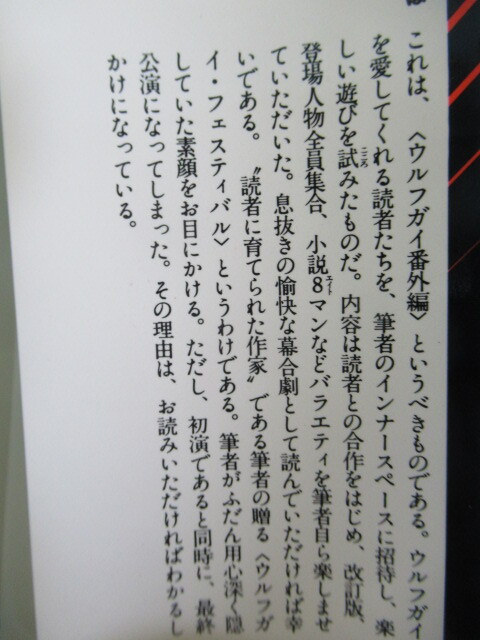 これは、〈ウルフガイ番外編〉というべきものである。ウルフガイ
を愛してくれる読者たちを、筆者のインナースペースに招待し、楽
しい遊びを試みたものだ。内容は読者との合作をはじめ、改訂版、
登場人物全員集合、小説8マンなどバラエティを筆者自ら楽しませ
ていただいた。息抜きの愉快な幕合劇として読んでいただければ幸
いである。〝読者に育てられた作家〟である筆者の贈る〈ウルフガ
イ・フェスティバル〉というわけである。筆者がふだん用心深く隠
していた素顔をお目にかける。ただし、初演であると同時に、最終
公演になってしまった。その理由は、お読みいただければわかるし
かけになっている。